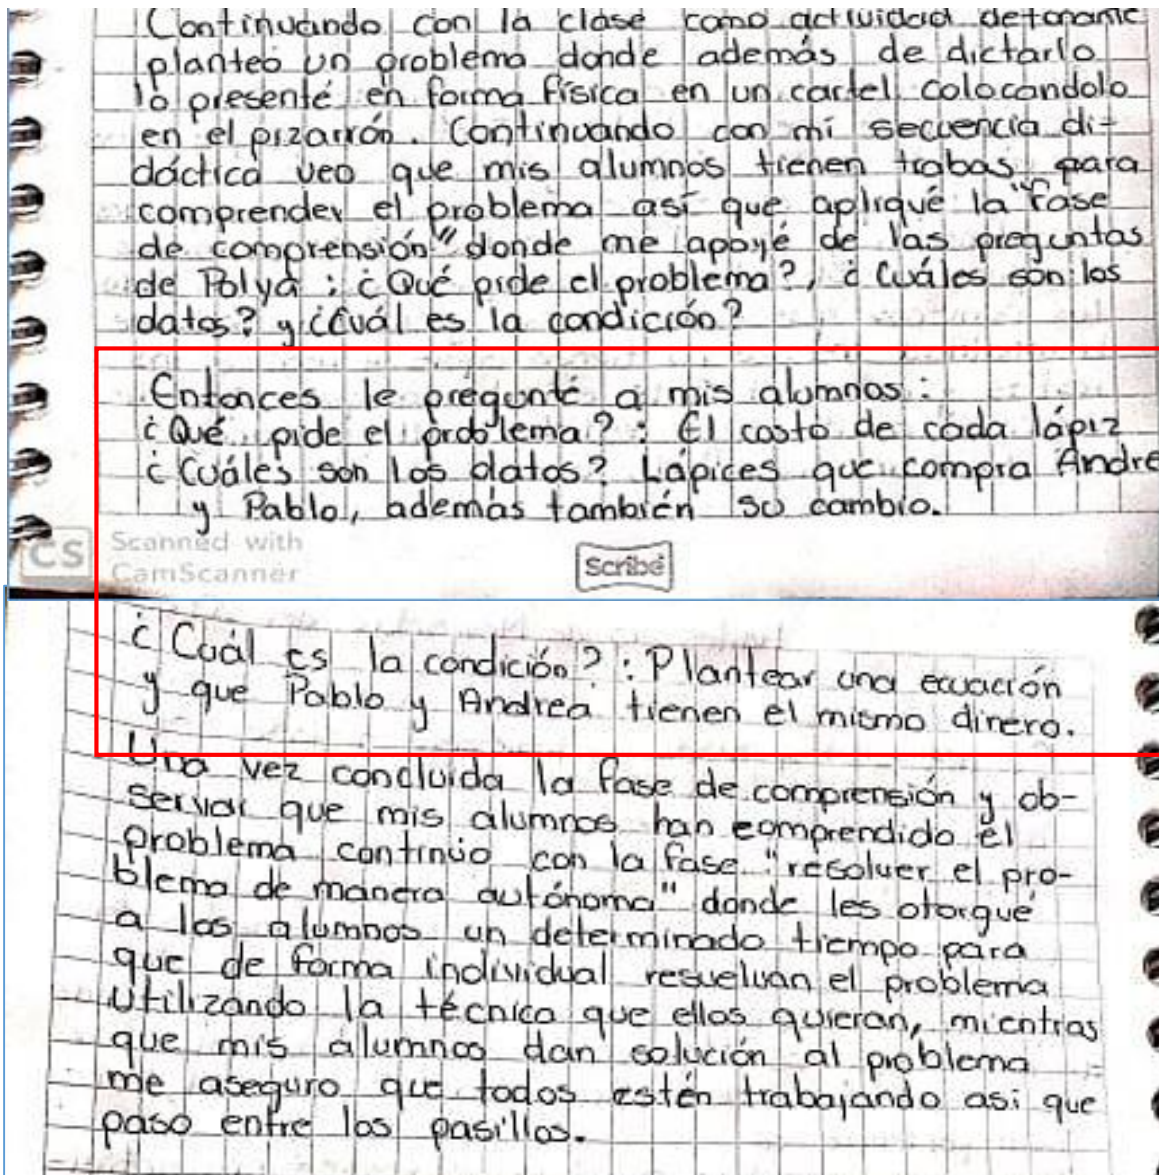 Continuando con la clase como actividad detonante
planteo un problema donde además de dictarlo
lo presenté en forma física en un cartel colocandolo
en el pizarrón. Continuando con mi secuencia di-
dáctica veo que mis alumnos tienen trabas para
comprender el problema así que apliqué la "fase
de comprensión" donde me apoyé de las preguntas
de Polya: ¿Qué pide el problema?, ¿Cuáles son los
datos? y ¿Cuál es la condición?
Entonces le pregunté a mis alumnos:
¿Qué pide el problema?: El costo de cada lápiz
¿Cuáles son los datos? Lápices que compra Andre
y Pablo, además también su cambio.
CS Scanned with
CamScanner
Scribe
¿Cuál es la condición?: Plantear una ecuación
y que Pablo y Andrea tienen el mismo dinero.
Una vez concluida la fase de comprensión y ob-
servar que mis alumnos han comprendido el
problema continúo con la fase "resolver el pro-
blema de manera autónoma" donde les otorgué
a los alumnos un determinado tiempo para
que de forma individual resuelvan el problema
utilizando la técnica que ellos quieran, mientras
que mis alumnos dan solución al problema
me aseguro que todos estén trabajando asi que
paso entre los pasillos.